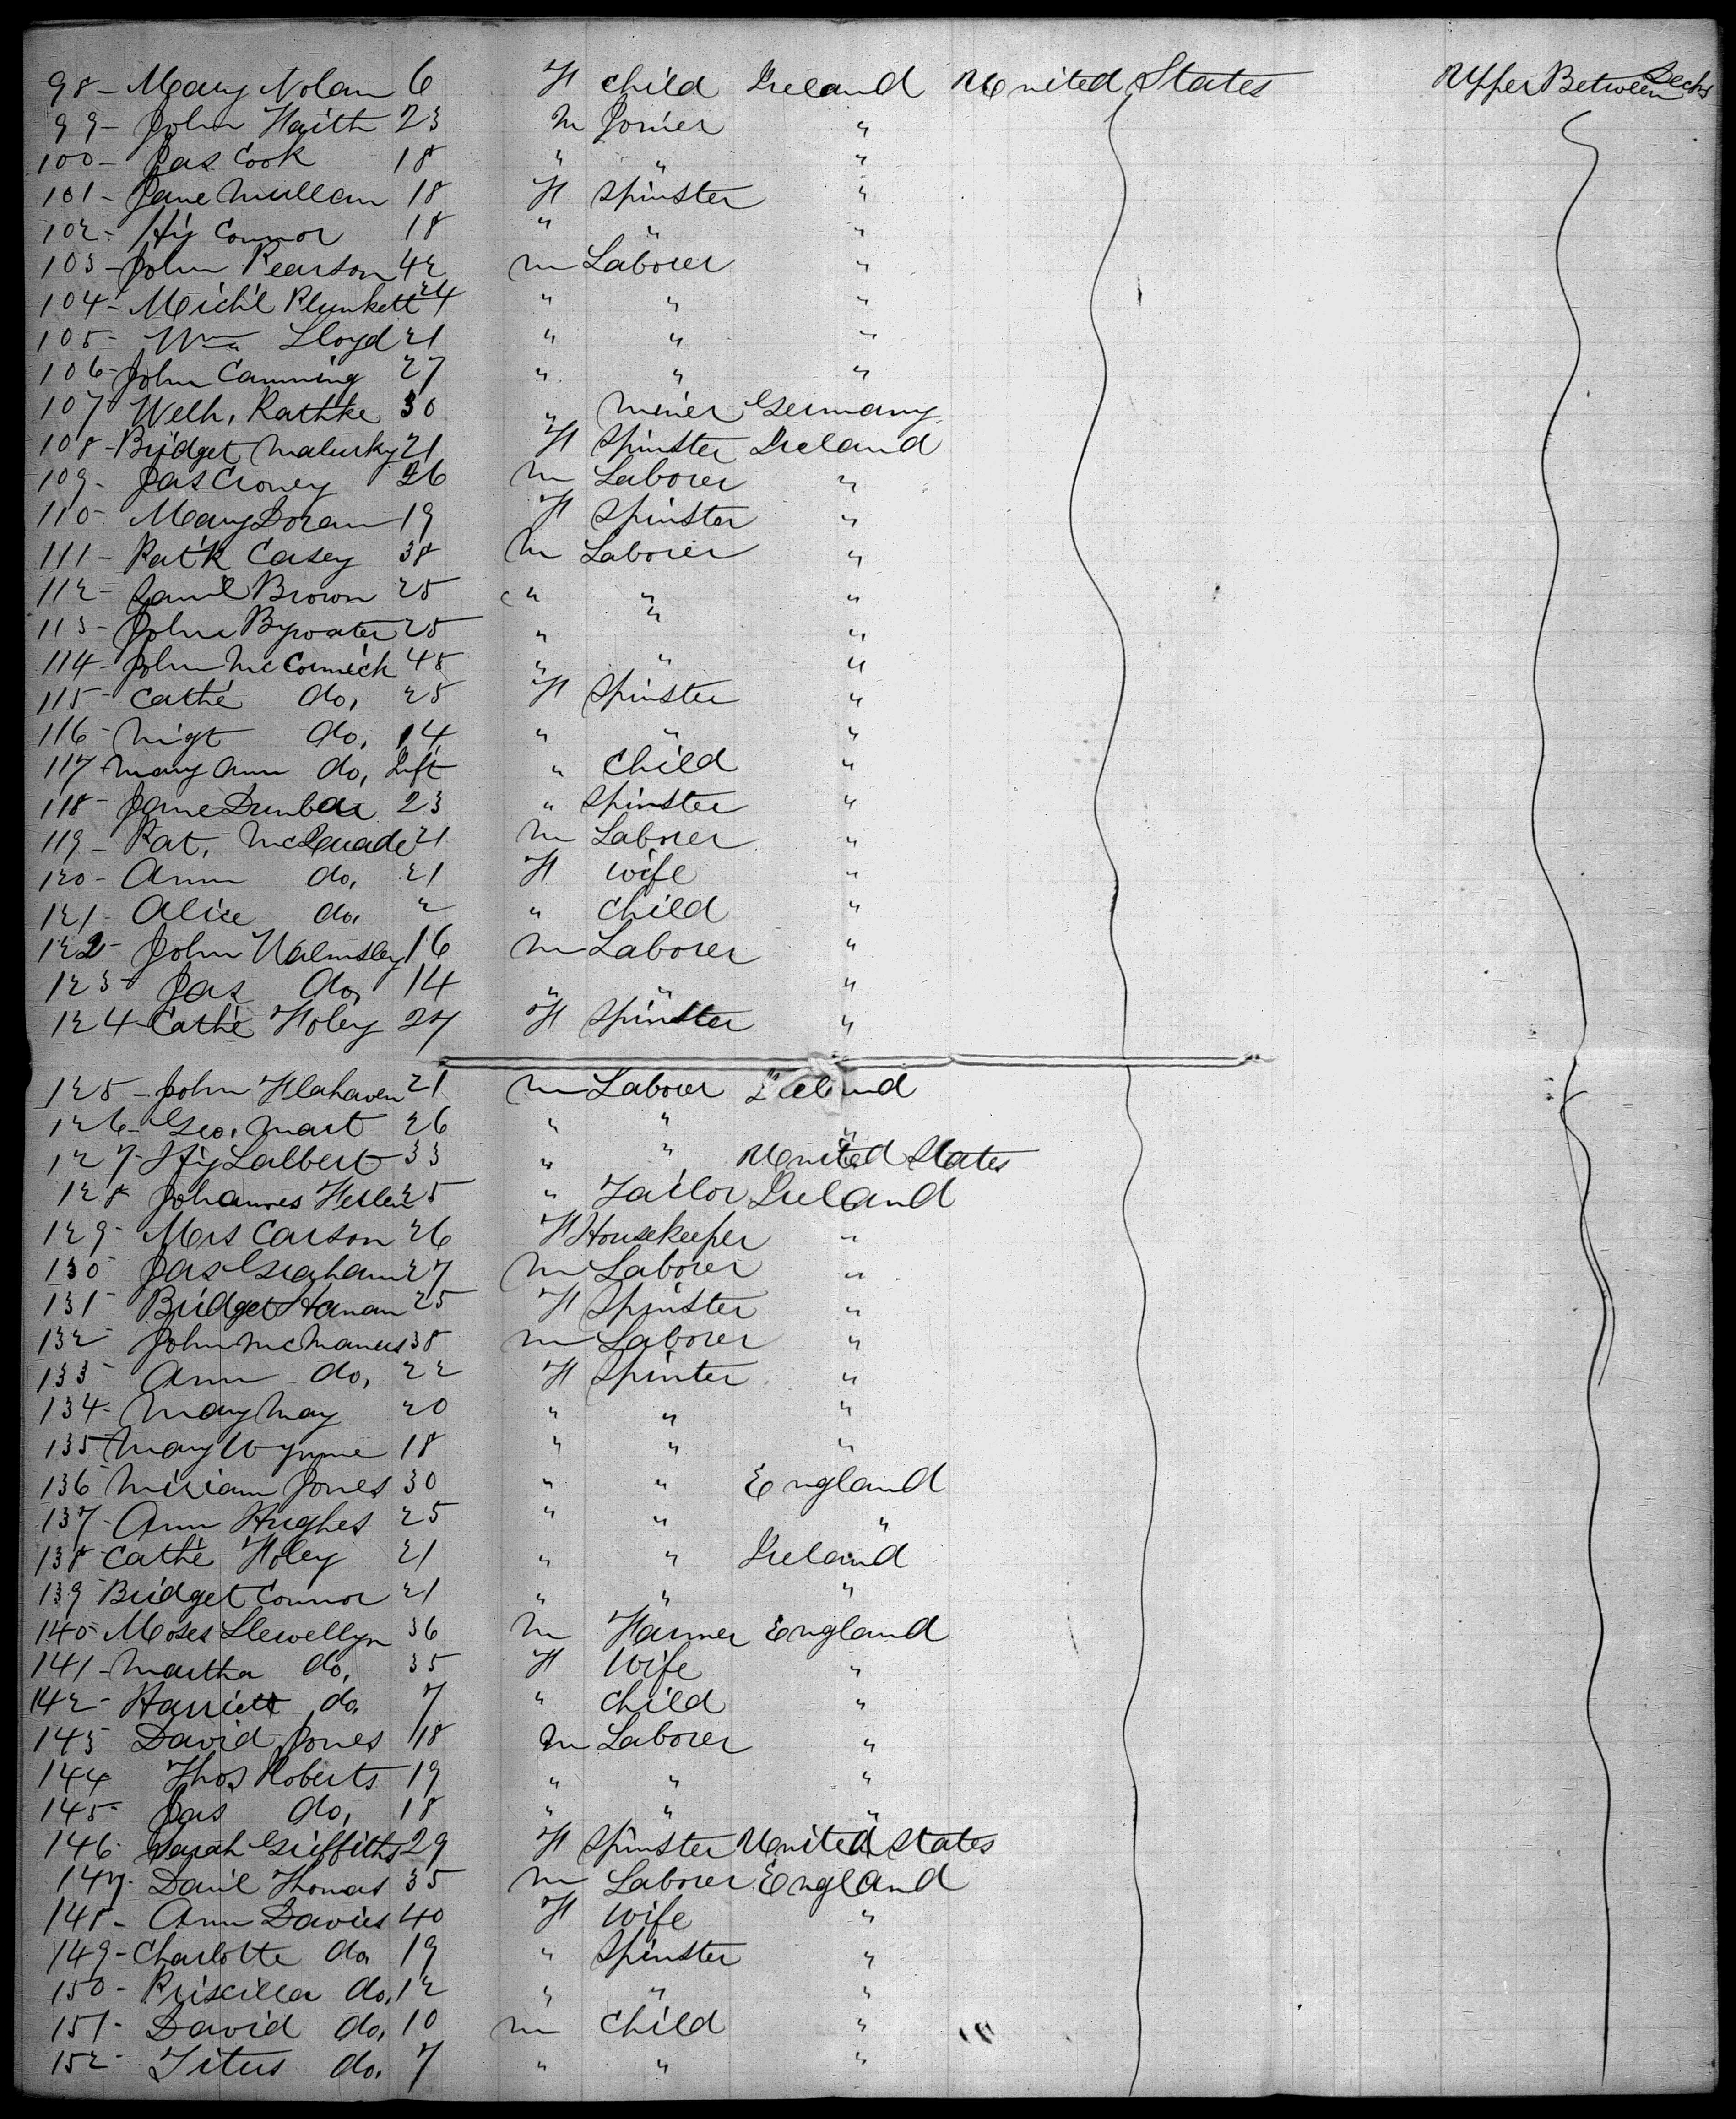 98- Mary Nolan 6 F child Ireland United States Upper Between Decks
99- John Haith 23 M Joiner " 
100- Jas Cook 18 " " "
101- Jane Mullan 18 F Spinster "
102- Hy Connor 18 " " "
103- John Pearson 42 M Laborer "
104- Mich'l Plunkett 24 " " "
105- Wm Lloyd 21 " " "
106- John Camming 27 " " "
107 Welh, Rathke 30 " Miner Germany
108- Bridget Maturky 21 F Spinster Ireland
109- Jas Croney 26 M Laborer "
110- Mary Doran 19 F Spinster "
111- Pat'k Casey 38 M Laborer "
112- Saml Brown 25 " " "
113- John Bywater 25 " " "
114- John McCormick 45 " " "
115- Cathe do, 25 F Spinster "
116- Migt do, 14 " " "
117- Mary Ann do, Inft " child "
118- Jane Dunbar 23 " Spinster "
119- Pat, McQuade 21 M Laborer "
120- Ann do, 21 F wife "
121- Alice do, 2 " child "
122- John Walmsley 16 M Laborer "
123- Jas do, 14 " " "
124- Cathe Foley 27 F Spinster "
125- John Flahaven 21 M Laborer Ireland
126- Geo, Mart 26 " " "
127- Hy Lalbert 33 " " United States
128 Johannes 25 " Tailor Ireland
129- Mrs Carson 26 F Housekeeper "
130 Jas Graham 27 M Laborer "
131 Bridget Hanan 25 F Spinster "
132 John McManus 38 M Laborer "
133 Ann do, 22 F Spinter "
134- Mary May 20 " " "
135 Mary Wynne 18 " " "
136 Miriam Jones 30 " " England
137- Ann Hughes 25 " " "
138 Cathe Foley 21 " " Ireland
139 Bridget Connor 21 " " "
140 Moses Llewellyn 36 M Farmer England
141- Martha do, 35 F Wife "
142- Harriett do, 7 " child "
143 David Jones 18 M Laborer "
144 Thos Roberts 19 " " "
145- Jas do, 18 " " "
146- Sarah Griffiths 29 F Spinster United States
147- Danl Thomas 35 M Laborer England
148- Ann Davies 40 F Wife "
149- Charlotte do 19 " Spinster "
150- Priscilla do, 12 " " "
151- David do, 10 M child "
152- Titus do, 7 " " "